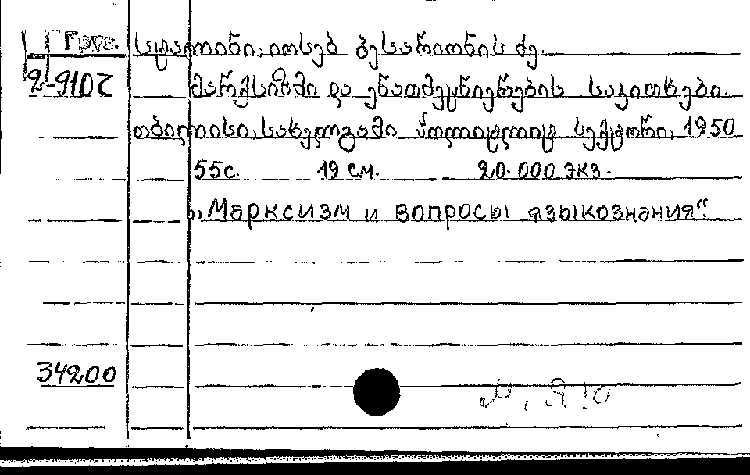 Груз. სტალინი, იოსებ ბესარიონის ძე.
2-9107 მარქსიზმი და ენათმეცნიერების საკითხები.
თბილისი, სახელგამი პოლიტლიტ სექტორი, 1950
55с. 19 см. 20.000 экз.
„Марксизм и вопросы языкознания“.
34200